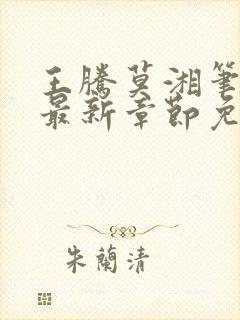 王騰莫湘筆
最新章節免
朱蘭清